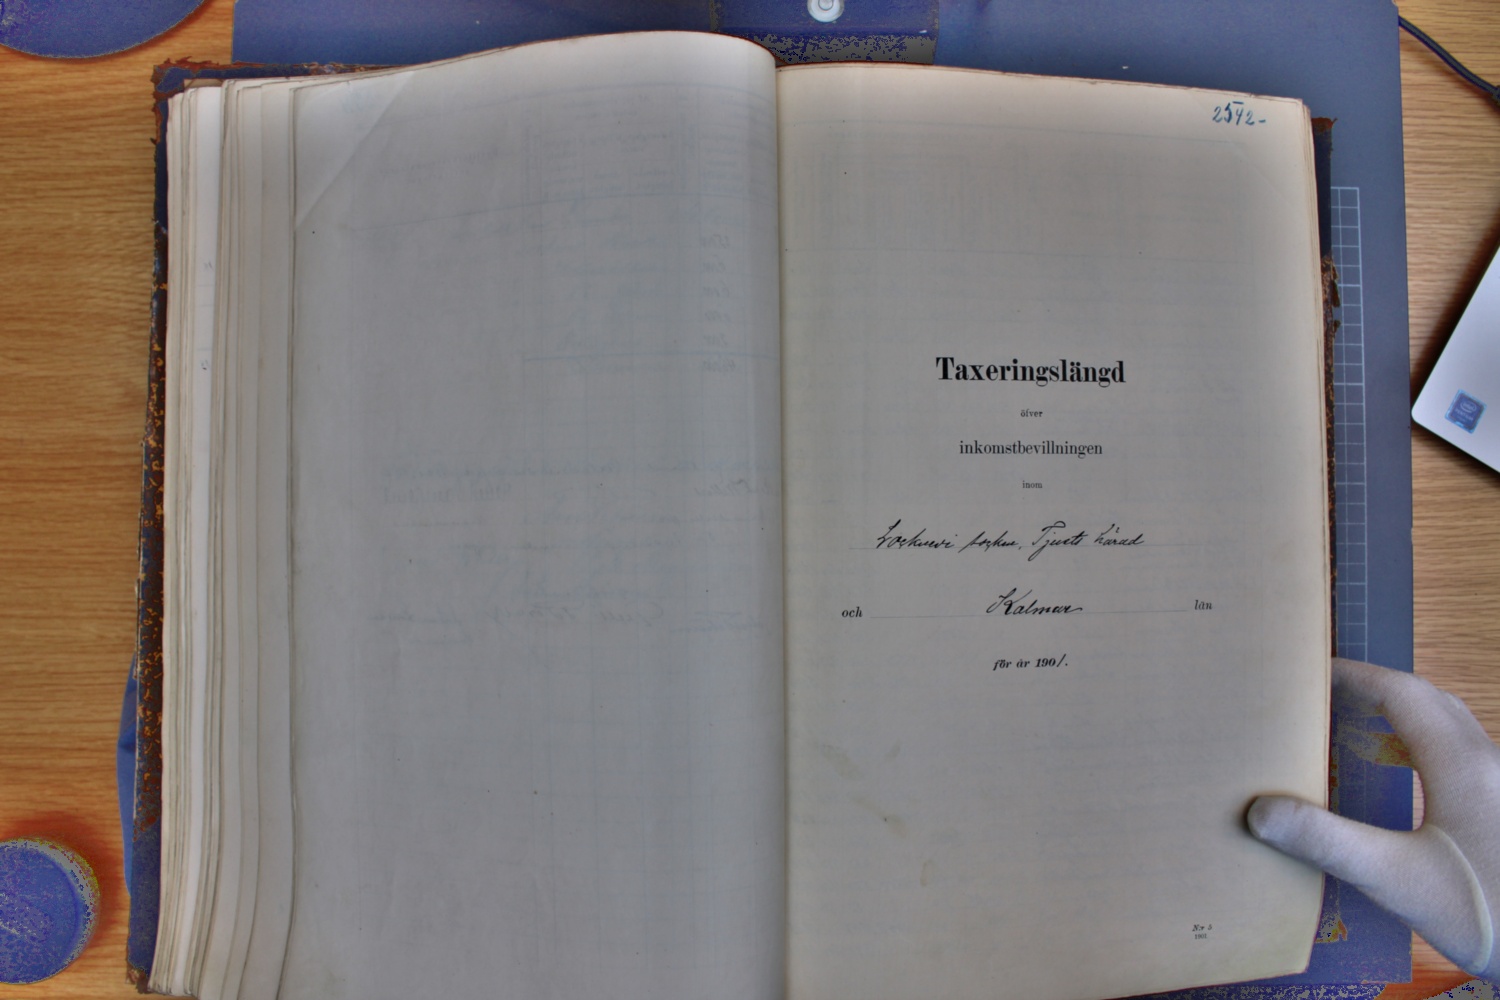 2542-
Taxeringslängd
öfver
inkomstbevillningen
inom
Locknevi socken, Tjusts härad
och Kalmar län
för år 1901.
N:r 5
1901